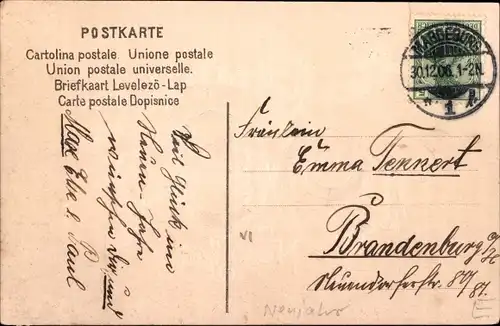 POSTKARTE
Cartolina postale. Unione postale
Union postale universelle.
Briefkaart Levelezö-Lap
Carte postale Dopisnice
MAGDEBURG
30.12.06. 1-2N.
1
Viel Glück im
Neuen Jahre
wünschen Dir und
Max Else & Paul
Fräulein
Emma Tennert
Brandenburg a/H
Neuendorferstr. 80/
81.
VI
Neujahr